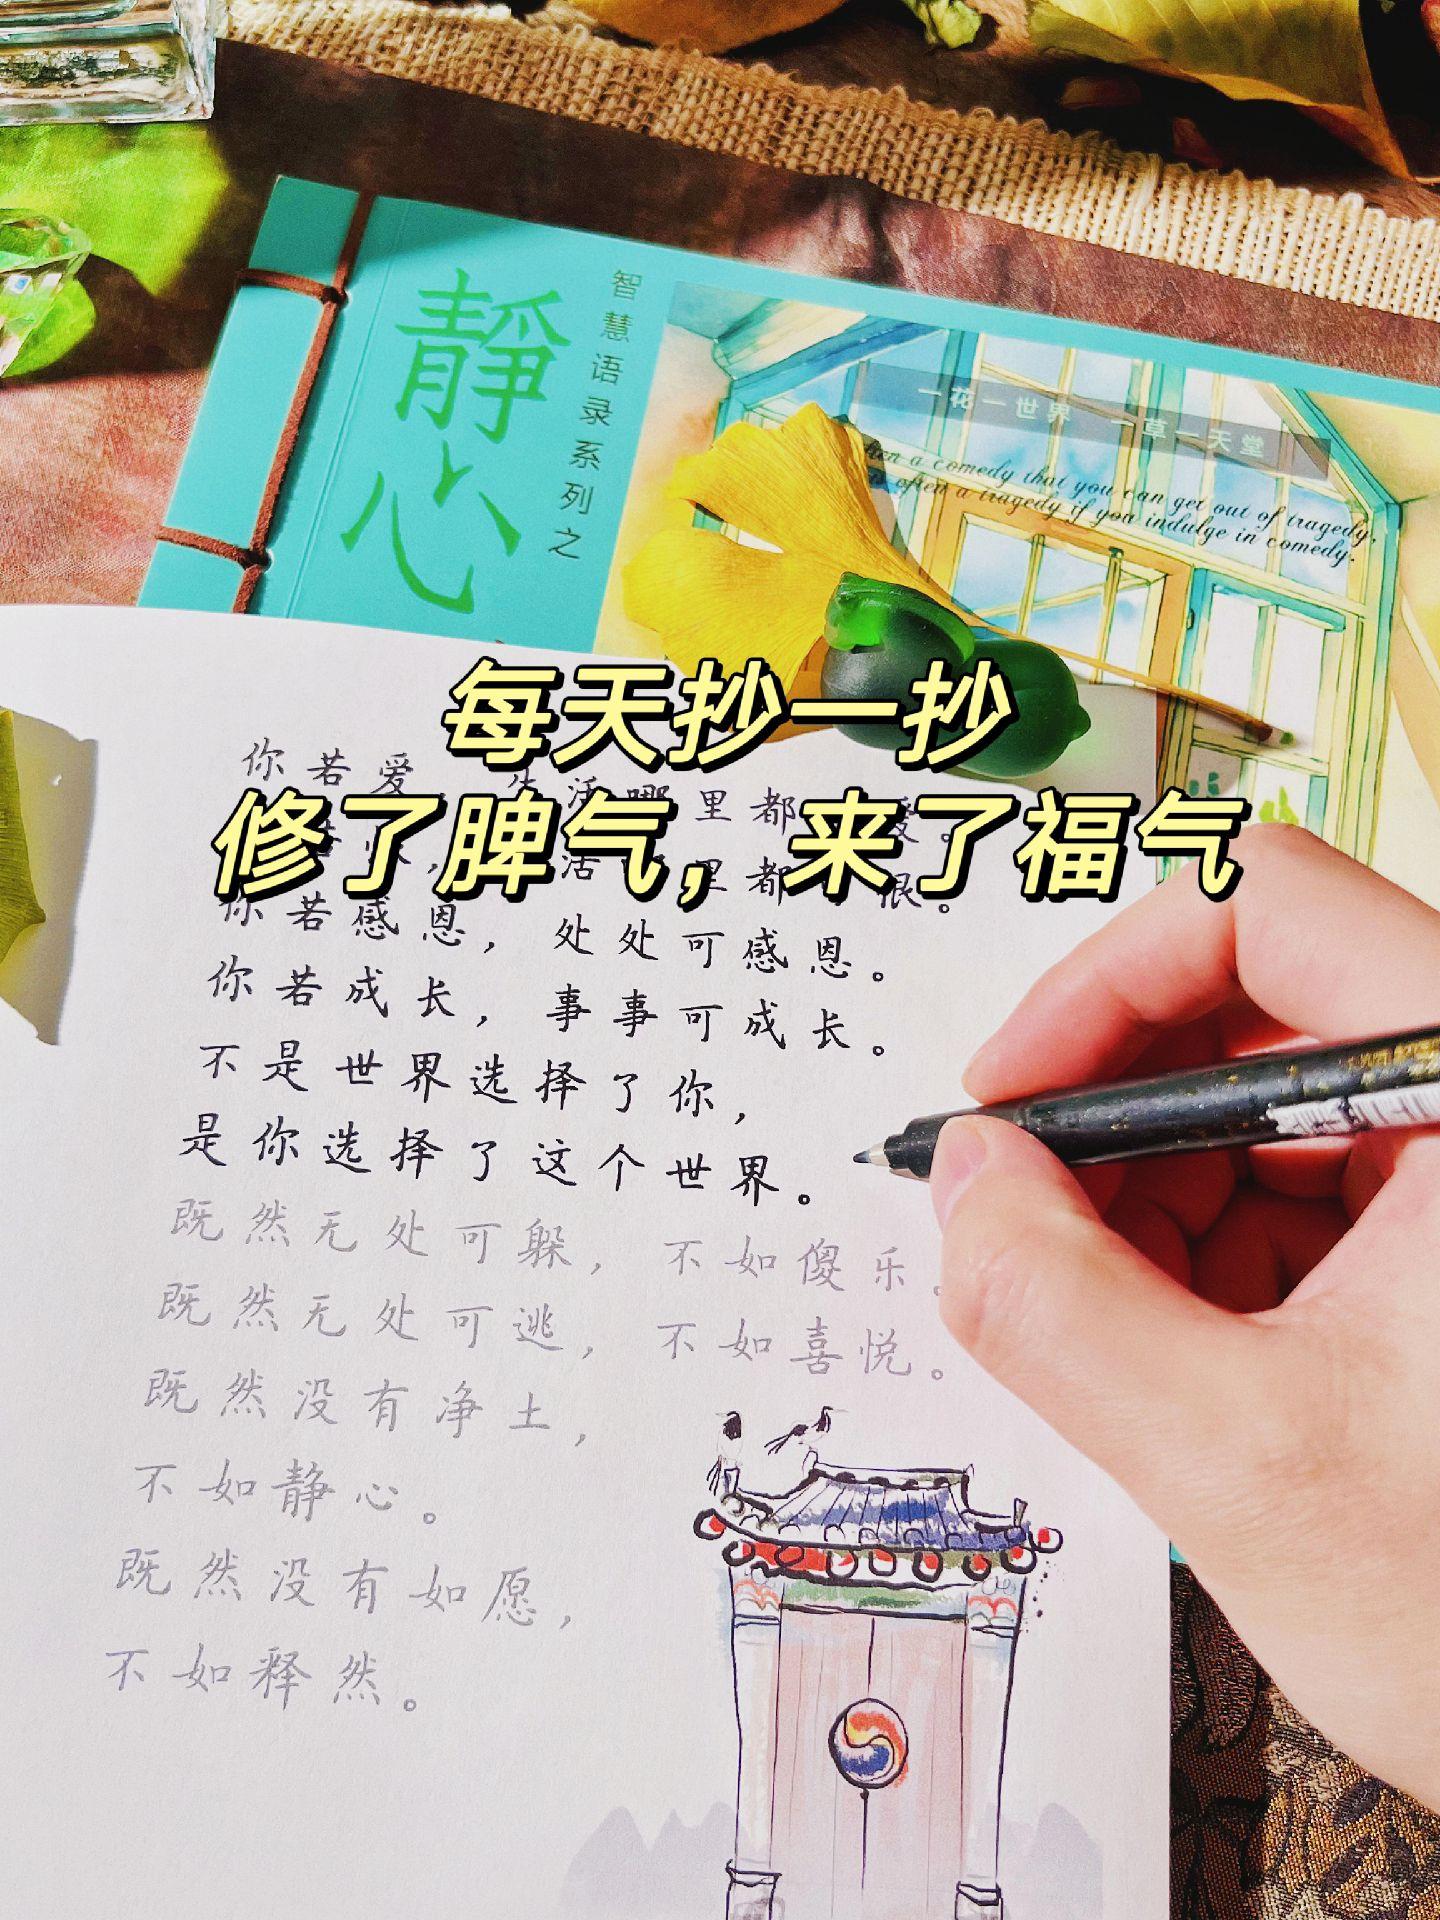 静心
智慧语录系列之
一花一世界 一草一天堂
a comedy that you can get out of tragedy,
is often a tragedy if you indulge in comedy.
每天抄一抄
修了脾气，来了福气
你若爱，生活哪里都 爱。
活 里都 恨。
你若感恩，处处可感恩。
你若成长，事事可成长。
不是世界选择了你，
是你选择了这个世界。
既然无处可躲，不如傻乐。
既然无处可逃，不如喜悦。
既然没有净土，
不如静心。
既然没有如愿，
不如释然。